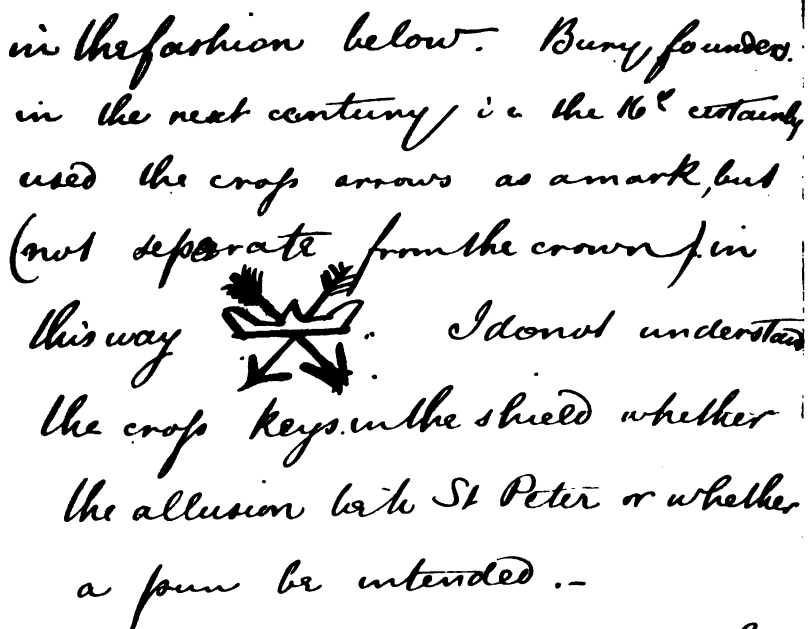 in the fashion below. Bury founders.
in the next century i e the 16th certainly
used the cross arrows as a mark, but
(not separate from the crown) in
this way I do not understand
the cross keys in the shield whether
the allusion be to St Peter or whether
a pun be intended . -